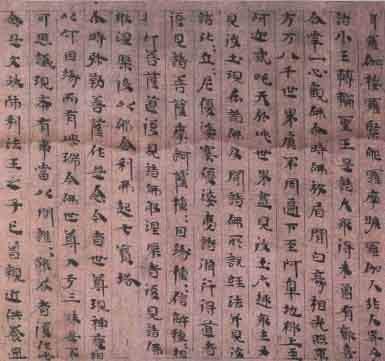 伽樓羅緊那羅摩睺羅伽人非人
諸小王轉輪聖王是諸大衆得未曾有歡喜
合掌一心觀佛尒時佛放眉間白豪相光照東
方万八千世界靡不周遍下至阿鼻地獄上
阿迦貳吒天於此世界盡見彼土六趣衆生
見彼土現在諸佛及聞諸佛所說經法并見彼
諸比丘々尼優婆塞優婆夷諸修行得道者
復見諸菩薩摩訶薩種々因緣種々信解種々相
行菩薩道復見諸佛般涅槃者復見諸佛
般涅槃後以佛舍利起七寶塔
尒時弥勒菩薩作是念今者世尊現神變相
以何因緣而有此瑞今佛世尊入于三昧是不
可思議現希有事當以問誰誰能荅者復作此
念是文殊師利法王之子已曾親近供養過